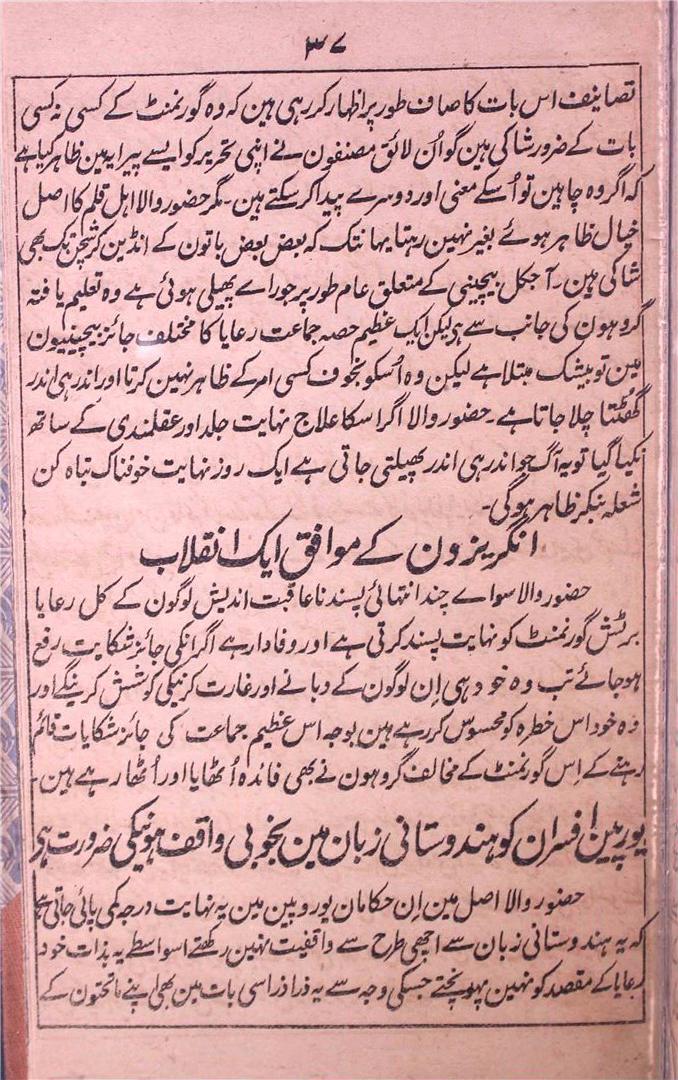 ۳۷
تصانیف اس بات کا صاف طور پر اظہار کر رہی ہین کہ وہ گورنمنٹ کے کسی نہ کسی
بات کے ضرور شاکی ہین گو اُن لائق مصنفون نے اپنی تحریر کو ایسے پیرایہ مین ظاہر کیا ہے
کہ اگر وہ چاہین تو اُسکے معنی اور دوسرے پیدا کر سکتے ہین۔ مگر حضور والا اہل قلم کا اصل
خیال ظاہر ہوئے بغیر نہین رہتا یہانتک کہ بعض بعض باتون کے انڈین کرسچن تک بھی
شاکی ہین۔ آجکل بیچینی کے متعلق عام طور پر جو راے پھیلی ہوئی ہے وہ تعلیم یافتہ
گروہون کی جانب سے ہی لیکن ایک عظیم حصہ جماعت رعایا کا مختلف جائز بیچینیون
مین تو بیشک مبتلا ہے لیکن وہ اُسکو بخوف کسی امر کے ظاہر نہین کرتا اور اندر ہی اندر
گھٹتا چلا جاتا ہے۔ حضور والا اگر اسکا علاج نہایت جلد اور عقلمندی کے ساتھ
نکیا گیا تو یہ آگ جو اندر ہی اندر پھیلتی جاتی ہے ایک روز نہایت خوفناک تباہ کن
شعلہ بنکر ظاہر ہو گی۔
انگریزون کے موافق ایک انقلاب
حضور والا سواے چند انتہائی پسند ناعاقبت اندیش لوگون کے کل رعایا
برٹش گورنمنٹ کو نہایت پسند کرتی ہے اور وفادار ہے اگر انکی جائز شکایت رفع
ہو جائے تب وہ خود ہی اِن لوگون کے دبانے اور غارت کرنیکی کوشش کرینگے اور
وہ خود اس خطرہ کو محسوس کر رہے ہین بوجہ اس عظیم جماعت کی جائز شکایات قائم
رہنے کے اِس گورنمنٹ کے مخالف گروہون نے بھی فائدہ اُٹھایا اور اُٹھا رہے ہین۔
یورپین افسران کو ہندوستانی زبان مین بخوبی واقف ہونیکی ضرورت ہی
حضور والا اصل مین اِن حکامان یوروپین مین یہ نہایت درجہ کمی پائی جاتی ہے
کہ یہ ہندوستانی زبان سے اچھی طرح سے واقفیت نہین رکھتے اسواسطے یہ بذات خود
رعایا کے مقصد کو نہین پہونچتے جسکی وجہ سے یہ ذرا ذراسی بات مین بھی اپنے ماتحتون کے